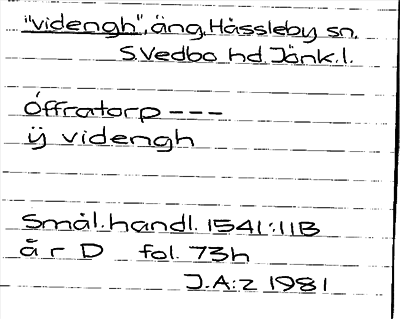 "videngh", äng, Hässleby sn,
S. Vedbo hd, Jönk. l.
Öffratorp - - -
ij videngh
Smål. handl. 1541:11B
år D fol. 73h
J.A:z 1981